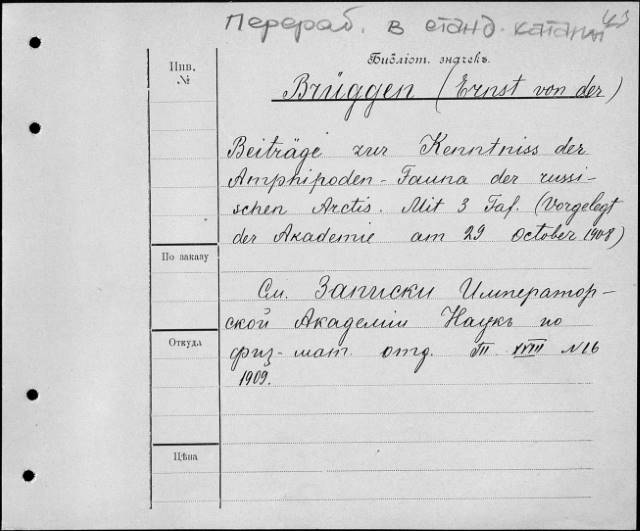 43
Перераб. в станд. каталог
Библіот. значекъ.
Инв.
№
Brüggen (Ernst von der)
Beiträge zur Kenntniss der
Amphipoden-Fauna der russi-
schen Arctis. Mit 3 Taf. (Vorgelegt
der Akademie am 29 October 1908)
По заказу
См. Записки Император-
ской Академіи Наукъ по
Откуда
физ-мат. отд. XVIII №16
1909.
Цѣна